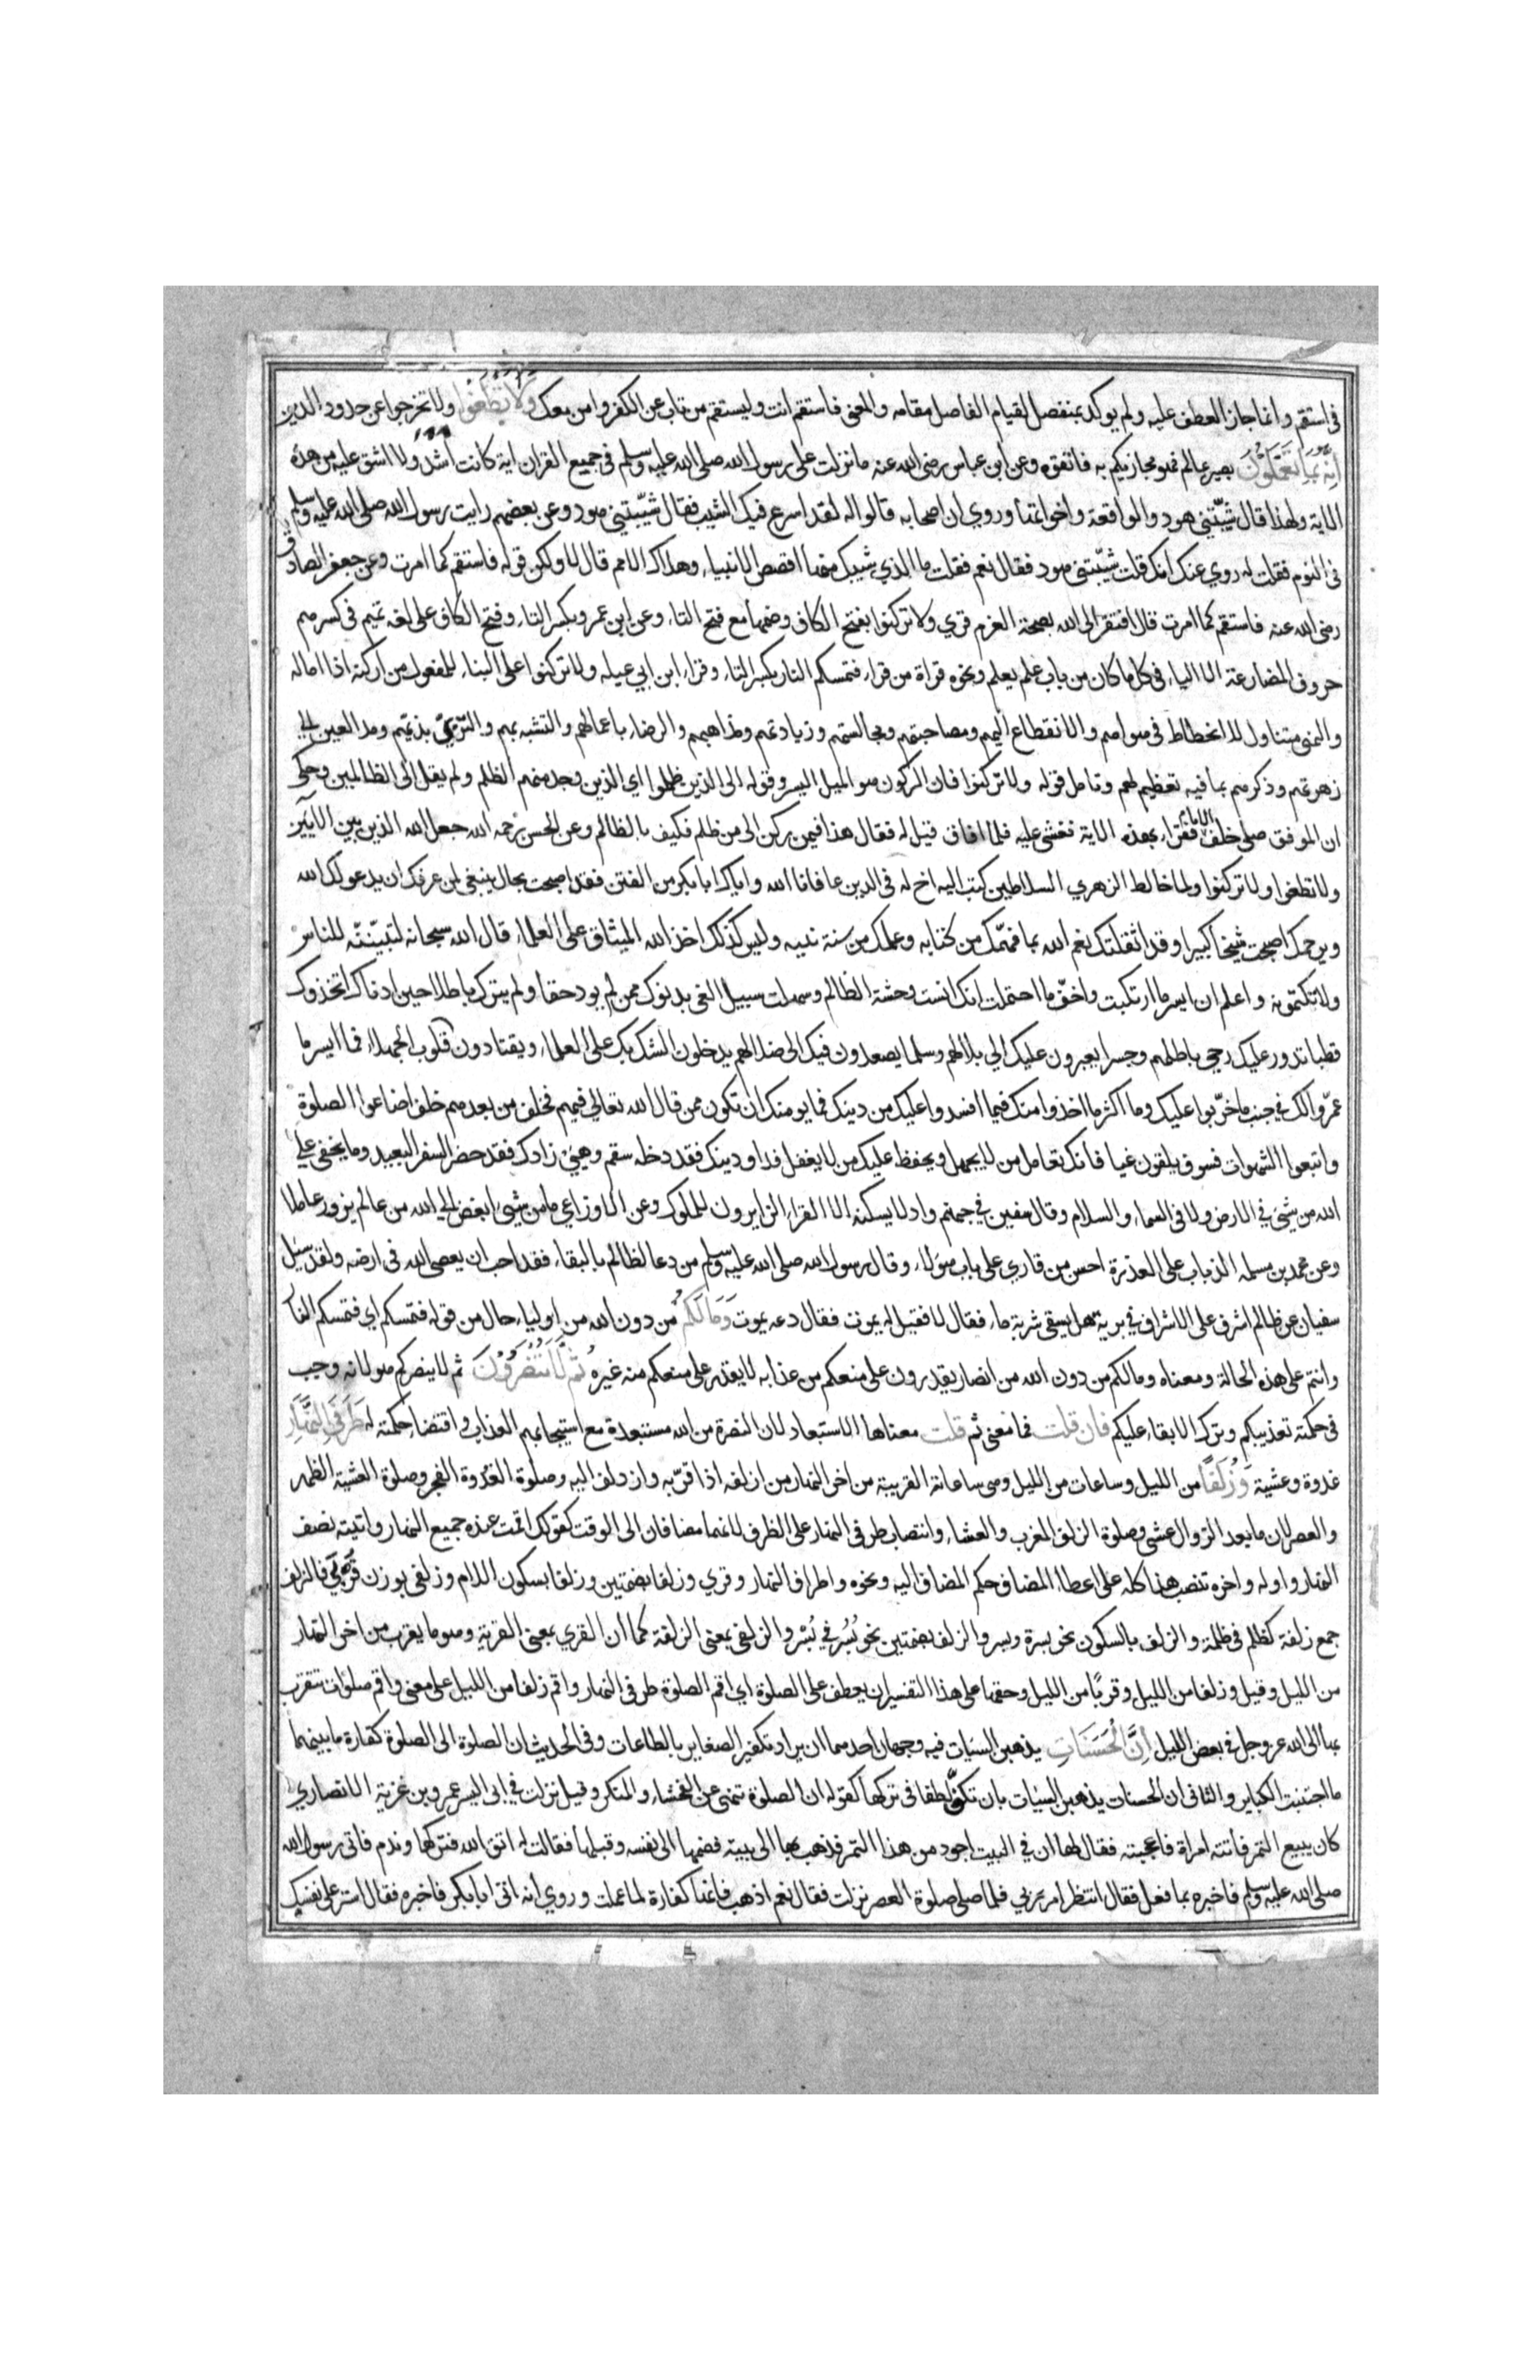 فى استقم وانما جاز العطف عليه ولم يوكد بمنفصل لقيام الفاصل مقامه والمعنى فاستقم انت وليستقم من تاب عن الكفر وامن معك وَلَا تَطْغَوْا ولا تخرجوا عن حدود الدين
اِنَّهُ بِمَا تَعْمَلُوْنَ بصير عالم فهو مجازيكم به فاتقوه وعن ابن عباس رضى الله عنه ما نزلت على رسول الله صلى الله عليه وسلم فى جميع القران اية كانت اشد ولا اشق عليه من هذه
الاية ولهذا قال شيّبتنى هود والواقعة واخواتها وروي ان اصحابه قالوا له لقد اسرع فيك الشيب فقال شيّبتنى هود وعن بعضهم رايت رسول الله صلى الله عليه وسلم
فى النوم فقلت له روي عنك انك قلت شيّبتنى هود فقال نعم فقلت ما الذي شيبك منها اقصص الانبياء وهلاك الامم قال لا ولكن قوله فاستقم كما امرت وعن جعفر الصادق
رضى الله عنه فاستقم كما امرت قال افتقر الى الله بصحة العزم قري ولا تركنوا بفتح الكاف وضمها مع فتح التاء وعن ابى عمرو بكسر التاء وفتح الكاف على لغة تميم فى كسرهم
حروف المضارعة الا الياء فى كل ما كان من باب علم يعلم ونحوه قراة من قراء فتمسكم النار بكسر التاء وقراء ابن ابي عبله ولا تركنوا على البناء للمفعول من اركنه اذا اماله
والنهى متناول للانحطاط فى هواهم والانقطاع اليهم ومصاحبتهم ومجالستهم وزيارتهم ومداهنتهم والرضاء باعمالهم والتشبه بهم والتزيّي بزيّهم ومد العين الي
زهرتهم وذكرهم بما فيه تعظيم لهم وتامل قوله ولا تركنوا فان الركون هو الميل اليسير وقوله الى الذين ظلموا اي الذين وجد منهم الظلم ولم يقل الى الظالمين وحكى
ان الموفق صلى خلف الامام فقراء بهذه الاية فغشى عليه فلما افاق قيل له فقال هذا فيمن ركن الى من ظلم فكيف بالظالم وعن الحسن رحمه الله جعل الله الذين بين الايتين
ولا تطغوا ولا تركنوا ولما خالط الزهري السلاطين كتب اليه اخ له فى الدين عافانا الله واياك ابا بكر من الفتن فقد اصبحت بحال ينبغى لمن عرفك ان يدعو لك الله
ويرحمك اصبحت شيخا كبيرا وقد اثقلتك نعم الله بما فهّمك من كتابه وعلمك من سنة نبيه وليس كذلك اخذ الله الميثاق على العلماء قال الله سبحانه لتبيّننّه للناس
ولا تكتمونه واعلم ان ايسر ما ارتكبت واخفّ ما احتملت انك انست وحشة الظالم وسهلت سبيل الغى بدنوك ممن لم يود حقا ولم يترك باطلا حين ادناك اتخذوك
قطبا تدور عليك رحى باطلهم وجسرا يعبرون عليك الي بلائهم وسلما يصعدون فيك الى ضلالهم يدخلون الشك بك على العلماء ويقتادون بك قلوب الجهلاء فما ايسر ما
عمّروا لك فى جنب ما خرّبوا عليك وما اكثر ما اخذوا منك فيما افسدوا عليك من دينك فما يومنك ان تكون ممن قال الله تعالي فيهم فخلف من بعدهم خلف اضاعوا الصلوة
واتبعوا الشهوات فسوف يلقون غيا فانك تعامل من لا يجهل ويحفظ عليك من لا يغفل فداو دينك فقد دخله سقم وهيئ زادك فقد حضر السفر البعيد وما يخفى علي
الله من شىء في الارض ولا فى السماء والسلام وقال سفين في جهنم واد لا يسكنه الا القراء الزايرون للملوك وعن الاوزاعي ما من شيء ابغض الي الله من عالم يزور عاملا
وعن محمد بن مسلمه الذباب على العذرة احسن من قاري على باب هولاء وقال رسول الله صلى الله عليه وسلم من دعا لظالم بالبقاء فقد احب ان يعصى الله فى ارضه ولقد سئل
سفيان عن ظالم اشرف على الاشراف في برية هل يسقى شربة ماء فقال لا فقيل له يموت فقال دعه يموت وَمَا لَكُمْ من دون الله من اولياء حال من قوله فتمسكم اي فتمسكم النار
وانتم على هذه الحالة ومعناه وما لكم من دون الله من انصار يقدرون على منعكم من عذابه لا يقدر على منعكم منه غيره ثُمَّ لَا تُنْصَرُوْنَ ثم لا ينصركم هو لانه وجب
فى حكمته تعذيبكم وترك الابقاء عليكم فان قلت فما معنى ثم قلت معناها الاستبعاد لان النصرة من الله مستبعدة مع استيجابهم العذاب واقتضاء حكمته له طَرَفَىِ النَّهَارِ
غدوة وعشية وَزُلَفًا من الليل وساعات من الليل وهى ساعاته القريبة من اخر النهار من ازلفه اذا قرّبه وازدلف اليه وصلوة الغُدوة الفجر وصلوة العشية الظهر
والعصر لان ما بعد الزوال عشى وصلوة الزلف المغرب والعشاء وانتصاب طرفى النهار على الظرف لانهما مضافان الى الوقت كقولك اقمت عنده جميع النهار واتيته نصف
النهار واوله واخره تنصب هذا كله على اعطاء المضاف حكم المضاف اليه ونحوه واطراف النهار وقري وزلفا بضمتين وزلفا بسكون اللام وزلفى بوزن قربى فالزلف
جمع زلفة كظلم فى ظلمة والزلف بالسكون نحو بسرة وبسر والزلف بضمتين نحو بُسُر في بُسْر والزلفى بمعنى الزلفة كما ان القربي بمعنى القربة وهو ما يقرب من اخر النهار
من الليل وقيل وزلفا من الليل وقربًا من الليل وحقها على هذا التفسير ان يعطف على الصلوة اي اقم الصلوة طرفى النهار واقم زلفا من الليل على معنى واقم صلوات تتقرب
بها الى الله عز وجل في بعض الليل اِنَّ الْحَسَنَاتِ يذهبن السيئات فيه وجهان احدهما ان يراد تكفير الصغاير بالطاعات وفى الحديث ان الصلوة الى الصلوة كفارة ما بينهما
ما اجتنبت الكباير والثانى ان الحسنات يذهبن السيئات بان تكون لطفا فى تركها كقوله ان الصلوة تنهى عن الفحشاء والمنكر وقيل نزلت في ابى اليسر عمرو بن غزية الانصاري
كان يبيع التمر فاتته امراة فاعجبته فقال لها ان في البيت اجود من هذا التمر فذهب بها الى بيته فضمها الى نفسه وقبلها فقالت له اتق الله فتركها وندم فاتى رسول الله
صلى الله عليه وسلم فاخبره بما فعل فقال انتظر امر ربي فلما صلى صلوة العصر نزلت فقال نعم اذهب فانها كفارة لما عملت وروي انه اتى ابا بكر فاخبره فقال استر على نفسك